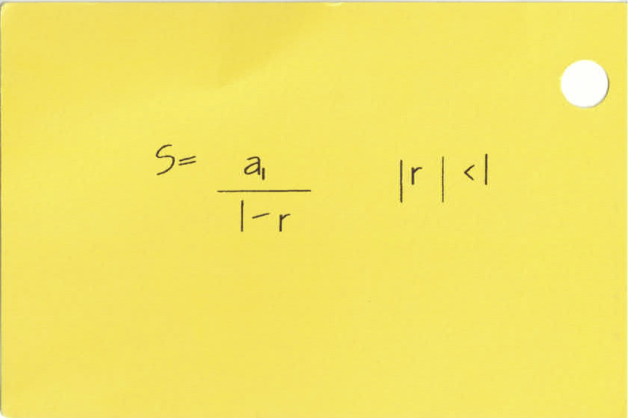 S = a₁ / (1 - r)    |r| < 1